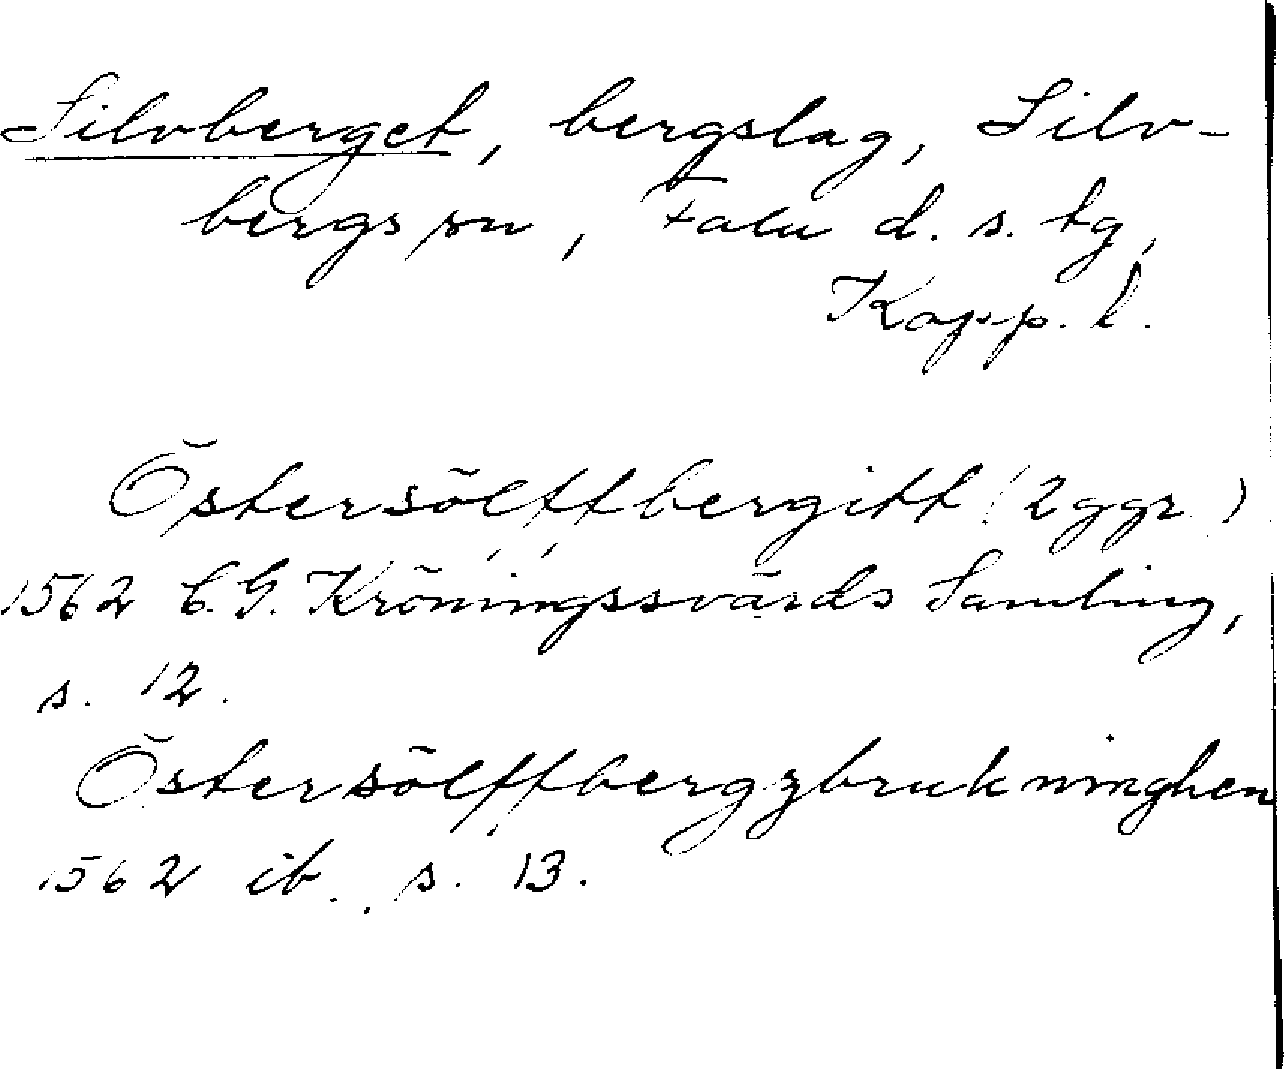 Silvberget, bergslag, Silv-
bergs sn, Falu d. s. tg,
Kopp. l.
Östersölffbergitt (2 ggr)
1562 C. G. Kröningssvärds Samling,
s. 12.
Östersölffbergzbrukninghen
1562 ib. s. 13.